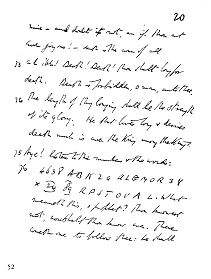 20
mine - and doubt it not, an if thou art
ever joyous! - death is the crown of all.
73 Ah! Ah! Death! Death! thou shalt long for
death. Death is forbidden, o man, unto thee.
74 The length of thy longing shall be the strength
of its glory. He that lives long & desires
death much is ever the King among the Kings.
75 Aye! listen to the numbers & the words:
76 4 6 3 8 A B K 2 4 A L G M O R 3 Y
X R P S T O V A L. What
meaneth this, o prophet? Thou knowest
not; nor shalt thou know ever. There
cometh one to follow thee: he shall
52